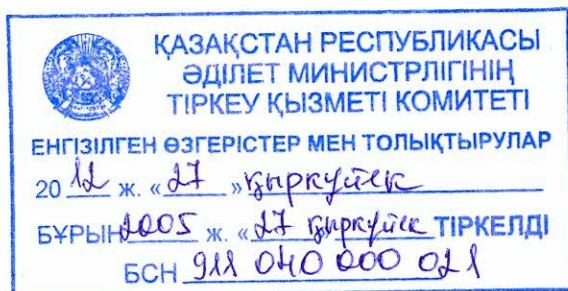 ҚАЗАҚСТАН РЕСПУБЛИКАСЫ
ӘДІЛЕТ МИНИСТРЛІГІНІҢ
ТІРКЕУ ҚЫЗМЕТІ КОМИТЕТІ
ЕНГІЗІЛГЕН ӨЗГЕРІСТЕР МЕН ТОЛЫҚТЫРУЛАР
20 12 ж. «27» қыркүйек
БҰРЫН 2005 ж. «27 қыркүйек ТІРКЕЛДІ
БСН 911 040 000 021